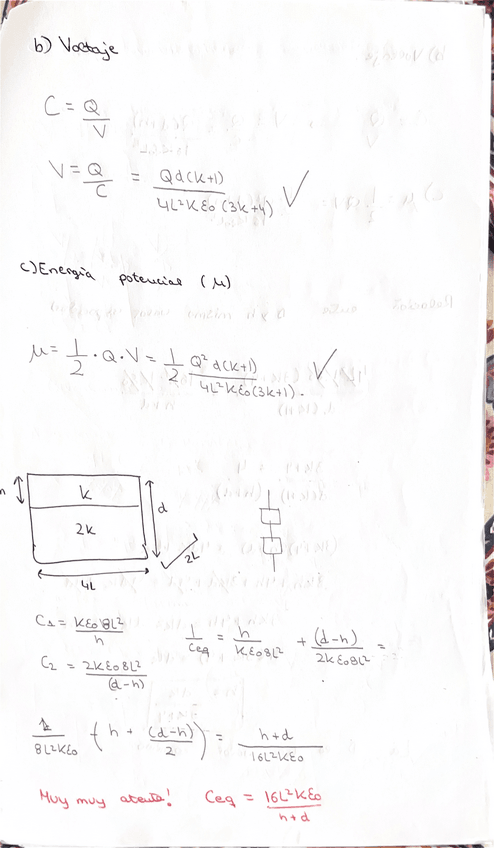 b) Voltaje
C = Q/V
V = Q/C = Qd(k+1)/4L²Kε₀(3k+4) ✓
c) Energía potencial (μ)
μ = 1/2 · Q · V = 1/2 Q²d(k+1)/4L²Kε₀(3k+1). ✓
k
d
2K
2L
4L
C₁ = Kε₀8L²/h
1/Ceq = h/K.ε₀8L² + (d-h)/2Kε₀8L² =
C₂ = 2Kε₀8L²/(d-h)
1/8L²Kε₀ (h + (d-h)/2) = h+d/16L²Kε₀
Muy muy atenta! Ceq = 16L²Kε₀/h+d